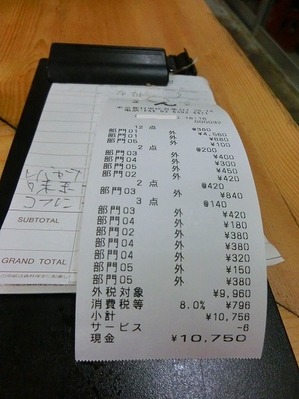 12 点 @380
部門01 外 ¥4,560
部門01 外 ¥680
部門05 外 ¥100
2 点 @200
部門03 外 ¥400
部門04 外 ¥300
部門05 外 ¥450
部門02 外 ¥420
2 点 @420
部門03 外 ¥840
3 点 @140
部門03 外 ¥420
部門04 外 ¥180
部門02 外 ¥380
部門04 外 ¥380
部門04 外 ¥320
部門05 外 ¥150
部門05 外 ¥380
外税対象 ¥9,960
消費税等 8.0% ¥796
小計 ¥10,756
サービス -6
現金 ¥10,750
SUBTOTAL
GRAND TOTAL